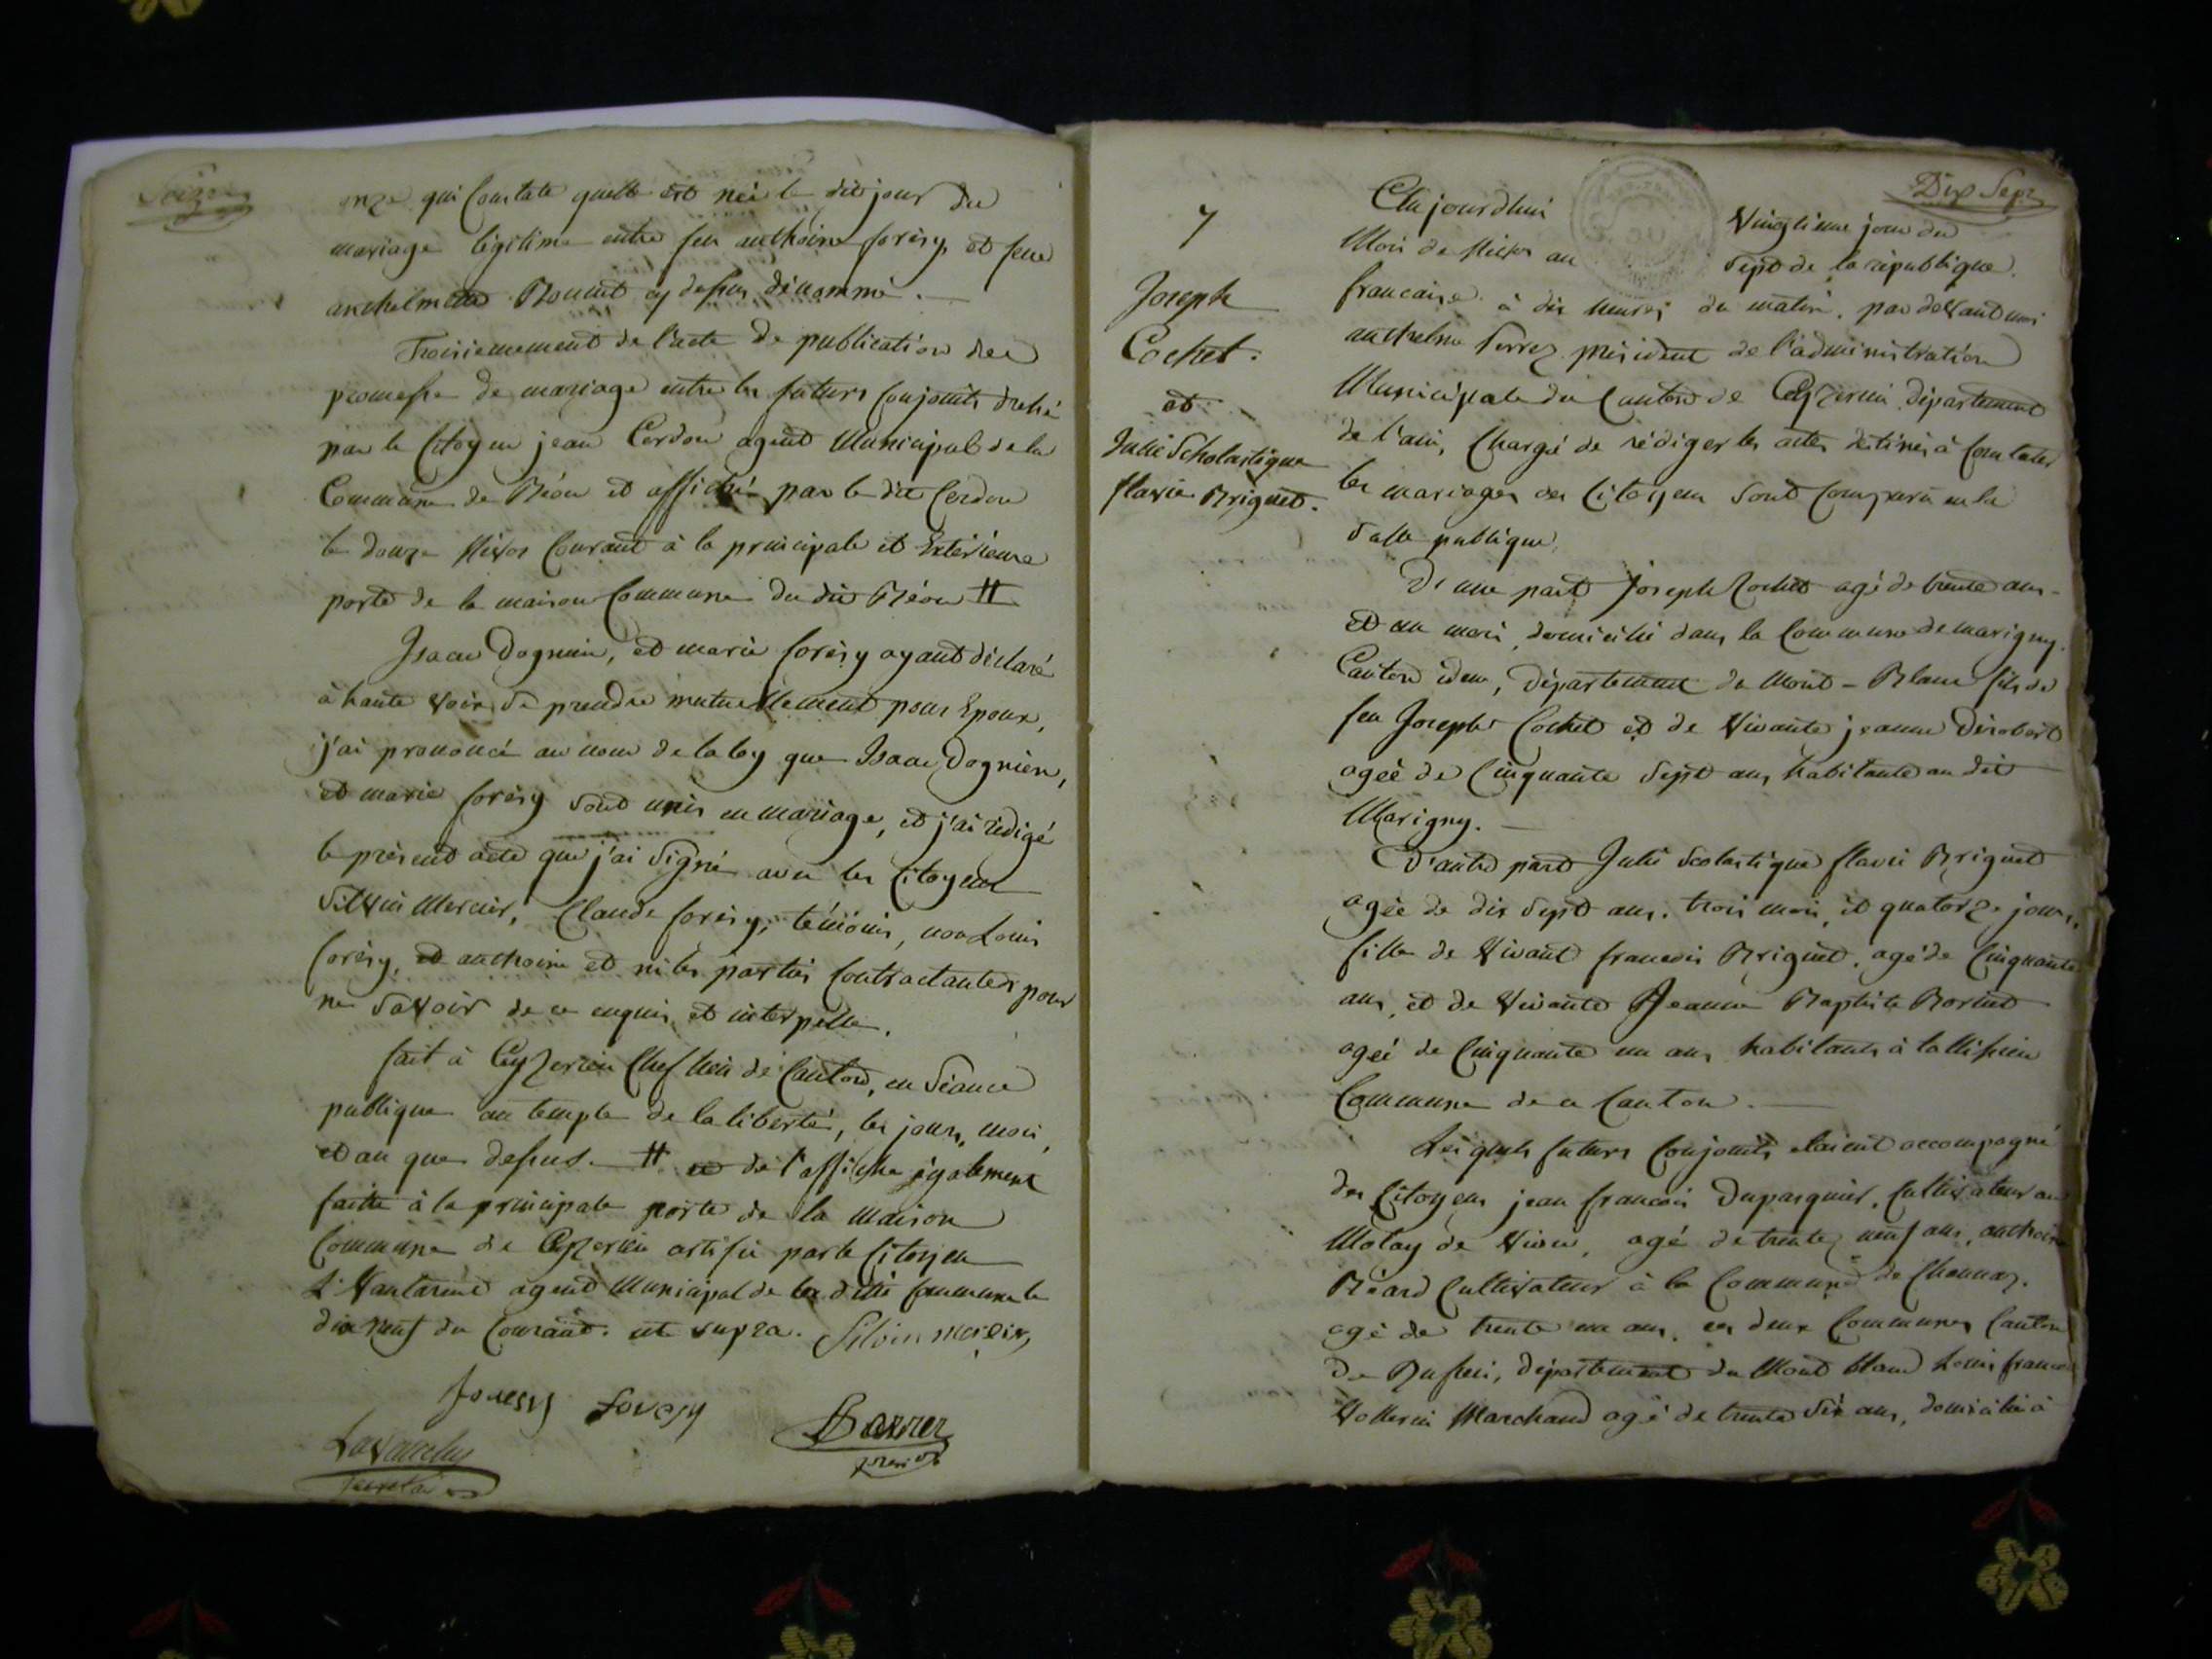 Seize
onze qui Constate quelle est née le dit jour du
mariage légitime entre feu anthoine forésy, et feue
anthelmette Bonnet cy dessus dénommé.
Troisiemement de l'acte de publication de
promesse de mariage entre les futurs Conjoints dressé
par le Citoyen jean Cerdon agent Municipal de la
Commune de Béon et affiché par le dit Cerdon
le douze Nivos Courant à la principale et Extérieure
porte de la maison Commune du dit Béon #
Isaac Dognien, et marie forésy ayant déclaré
à haute voix se prendre mutuellement pour Epoux,
j'ai prononcé au nom de la loy que Isaac Dognien,
et marie forésy sont unis en mariage, et j'ai rédigé
le présent acte que j'ai Signé avec les Citoyens
Silvin Mercier, Claude forésy, témoins, non Louis
forésy, et anthoine et ni les parties Contractantes pour
ne Savoir de ce enquis et interpellé.
fait à Ceyzerieu Chef lieu de Canton, en Séance
publique au temple de la liberté, les jour, mois,
et an que dessus. # et de l'affiche également
faitte à la principale porte de la maison
Commune de Ceyzerieu par le Citoyen
agent Municipal de la ditte Commune le
dix neuf du Courant. ut supra. Silvin
forésy forésy
7
Joseph
Cochet.
et
Julie Scholastique
flavie Briguet.
Dix Sept
Aujourdhui Vingtieme jour du
Mois de Nivos an Sept de la république
francaise à dix heures du matin, par devant moi
anthelme président de l'administration
Municipale du Canton de Ceyzerieu, Département
de l'ain, Chargé de rédiger les actes destinés à Constater
les mariages des Citoyens Sont Comparu en la
Salle publique,
D'une part Joseph Cochet agé de trente ans
et un mois, domicilié dans la Commune de marigny
Canton idem, Département du Mont-Blanc fils de
feu Joseph Cochet et de Vivante jeanne
agée de Cinquante Sept ans habitante au dit
Marigny.
D'autre part Julie Scolastique flavie Briguet
agée de dix Sept ans, trois mois, et quatorze jours,
fille de Vivant francois Briguet, agé de Cinquante
ans, et de Vivante Jeanne Baptiste
agée de Cinquante un ans habitants à
Commune de ce Canton.
Lesquels futurs Conjoints étaient accompagné
des Citoyens jean francois Dupasquier, Cultivateur au
Molay de Vions, agé de trente neuf ans, anthoine
Béard Cultivateur à la Commune de Chanaz,
agé de trente un ans, ces deux Communes Canton
de Ruffieu, département du Mont blanc Louis francois
Vollerin Marchand agé de trente Six ans, domicilié à